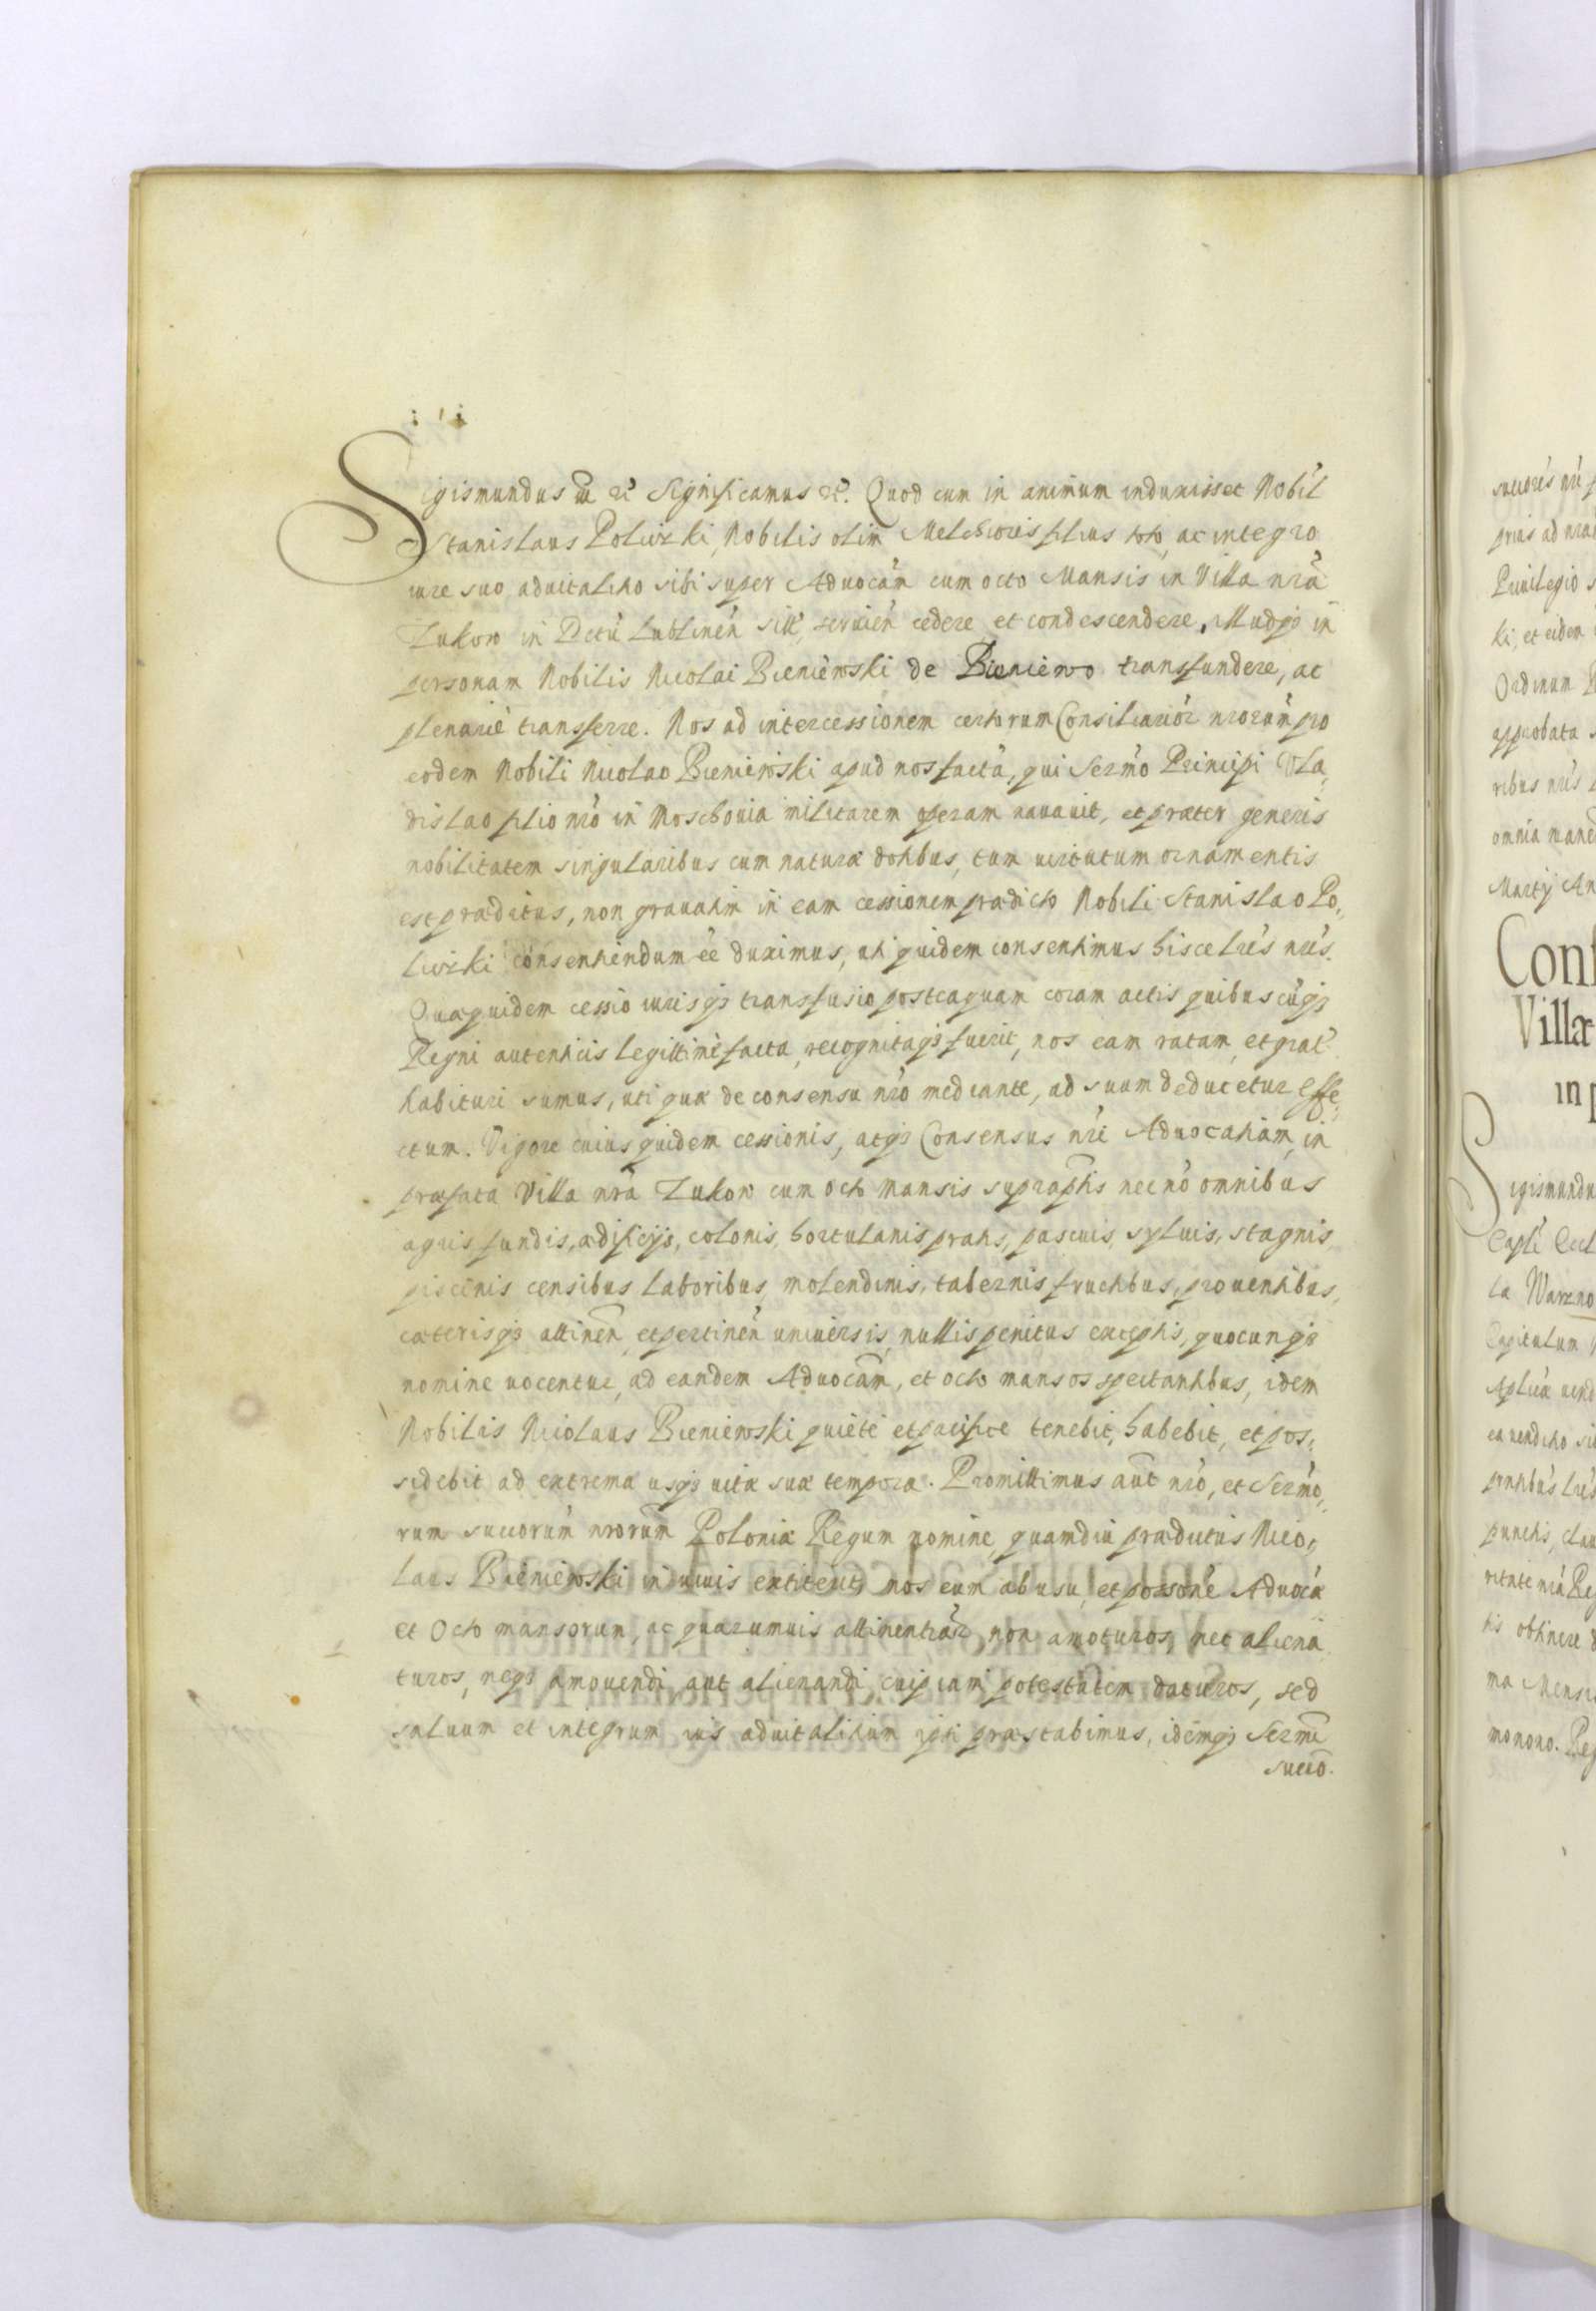 Sigismundus III &c Significamus &c. Quod cum in animum induxisset Nobil̃
Stanislaus Policzki, Nobilis olim Melchioris filius toto, ac integro
iure suo aduitalitio sibi super Aduocãm cum octo Mansis in Villa nr̃a
Zukow in Dctũ Lublineñ sitã, seruieñ cedere et condescendere, illudq́ in
personam Nobilis Nicolai Bieniewski de Bieniewo transfundere, ac
plenariè transferre. Nos ad intercessionem certorum Consiliarioř nrorũm pro
eodem Nobili Nicolao Bieniewski apud nos factã, qui Serm̃o Principi Vla,
dislao filio nr̃o in Moschouia militarem operam nauauit, et præter generis
nobilitatem singularibus cum naturæ dotibus, tum uirtutum ornamentis
est præditus, non grauatim in eam cessionem prædicto Nobili Stanislao Po,
liczki consentiendum eẽ duximus, uti quidem consentimus hisce lr̃is nr̃is.
Quæquidem cessio iurisq́ transfusio posteaquam coram actis quibuscũq́
Regni autenticis legittimè facta, recognitaq́ fuerit, nos eam ratam, et grat̃
habituri sumus, uti quæ de consensu nr̃o mediante, ad suum deducetur effe,
ctum. Vigore cuius quidem cessionis, atq́ Consensus nr̃i Aduocatiam, in
præfata Villa nr̃a Zukow cum octo mansis suprap̃tis necnõ omnibus
agris fundis, ædificijs, colonis, hortulanis pratis, pascuis, syluis, stagnis,
piscinis censibus laboribus, molendinis, tabernis fructibus, prouentibus,
cæterisq́ attineñ, et pertineñ uniuersis, nullis penitus exceptis, quocunq́
nomine uocentur, ad eandem Aduocãm, et octo mansos spectantibus, idem
Nobilis Nicolaus Bieniewski quietè et pacifice tenebit, habebit, et pos,
sidebit ad extrema usq́ uitæ suæ tempora. Promittimus aut̃ nr̃o, et Serm̃o,
rum succorũm nrorũm Poloniæ Regum nomine, quamdiu prædictus Nico,
laus Bieniewski in uiuis extiterit, nos eum ab usu, et posson̄e Aduocæ̃
et Octo mansorum, ac quarumuis attinentiař, non amoturos, nec aliena
turos, neq́ amouendi aut alienandi, cuipiam potestatem daturos, sed
saluum et integrum ius aduitalitium ipsi præstabimus, idemq́ Serm̃i
succõ.
succores nr̃i
Priuilegio
ki, et eidem
Ordinum
approbata
ribus nr̃is
omnia
Conf
Villæ
in p
Sigismundu
Capitulum
monono. Reg